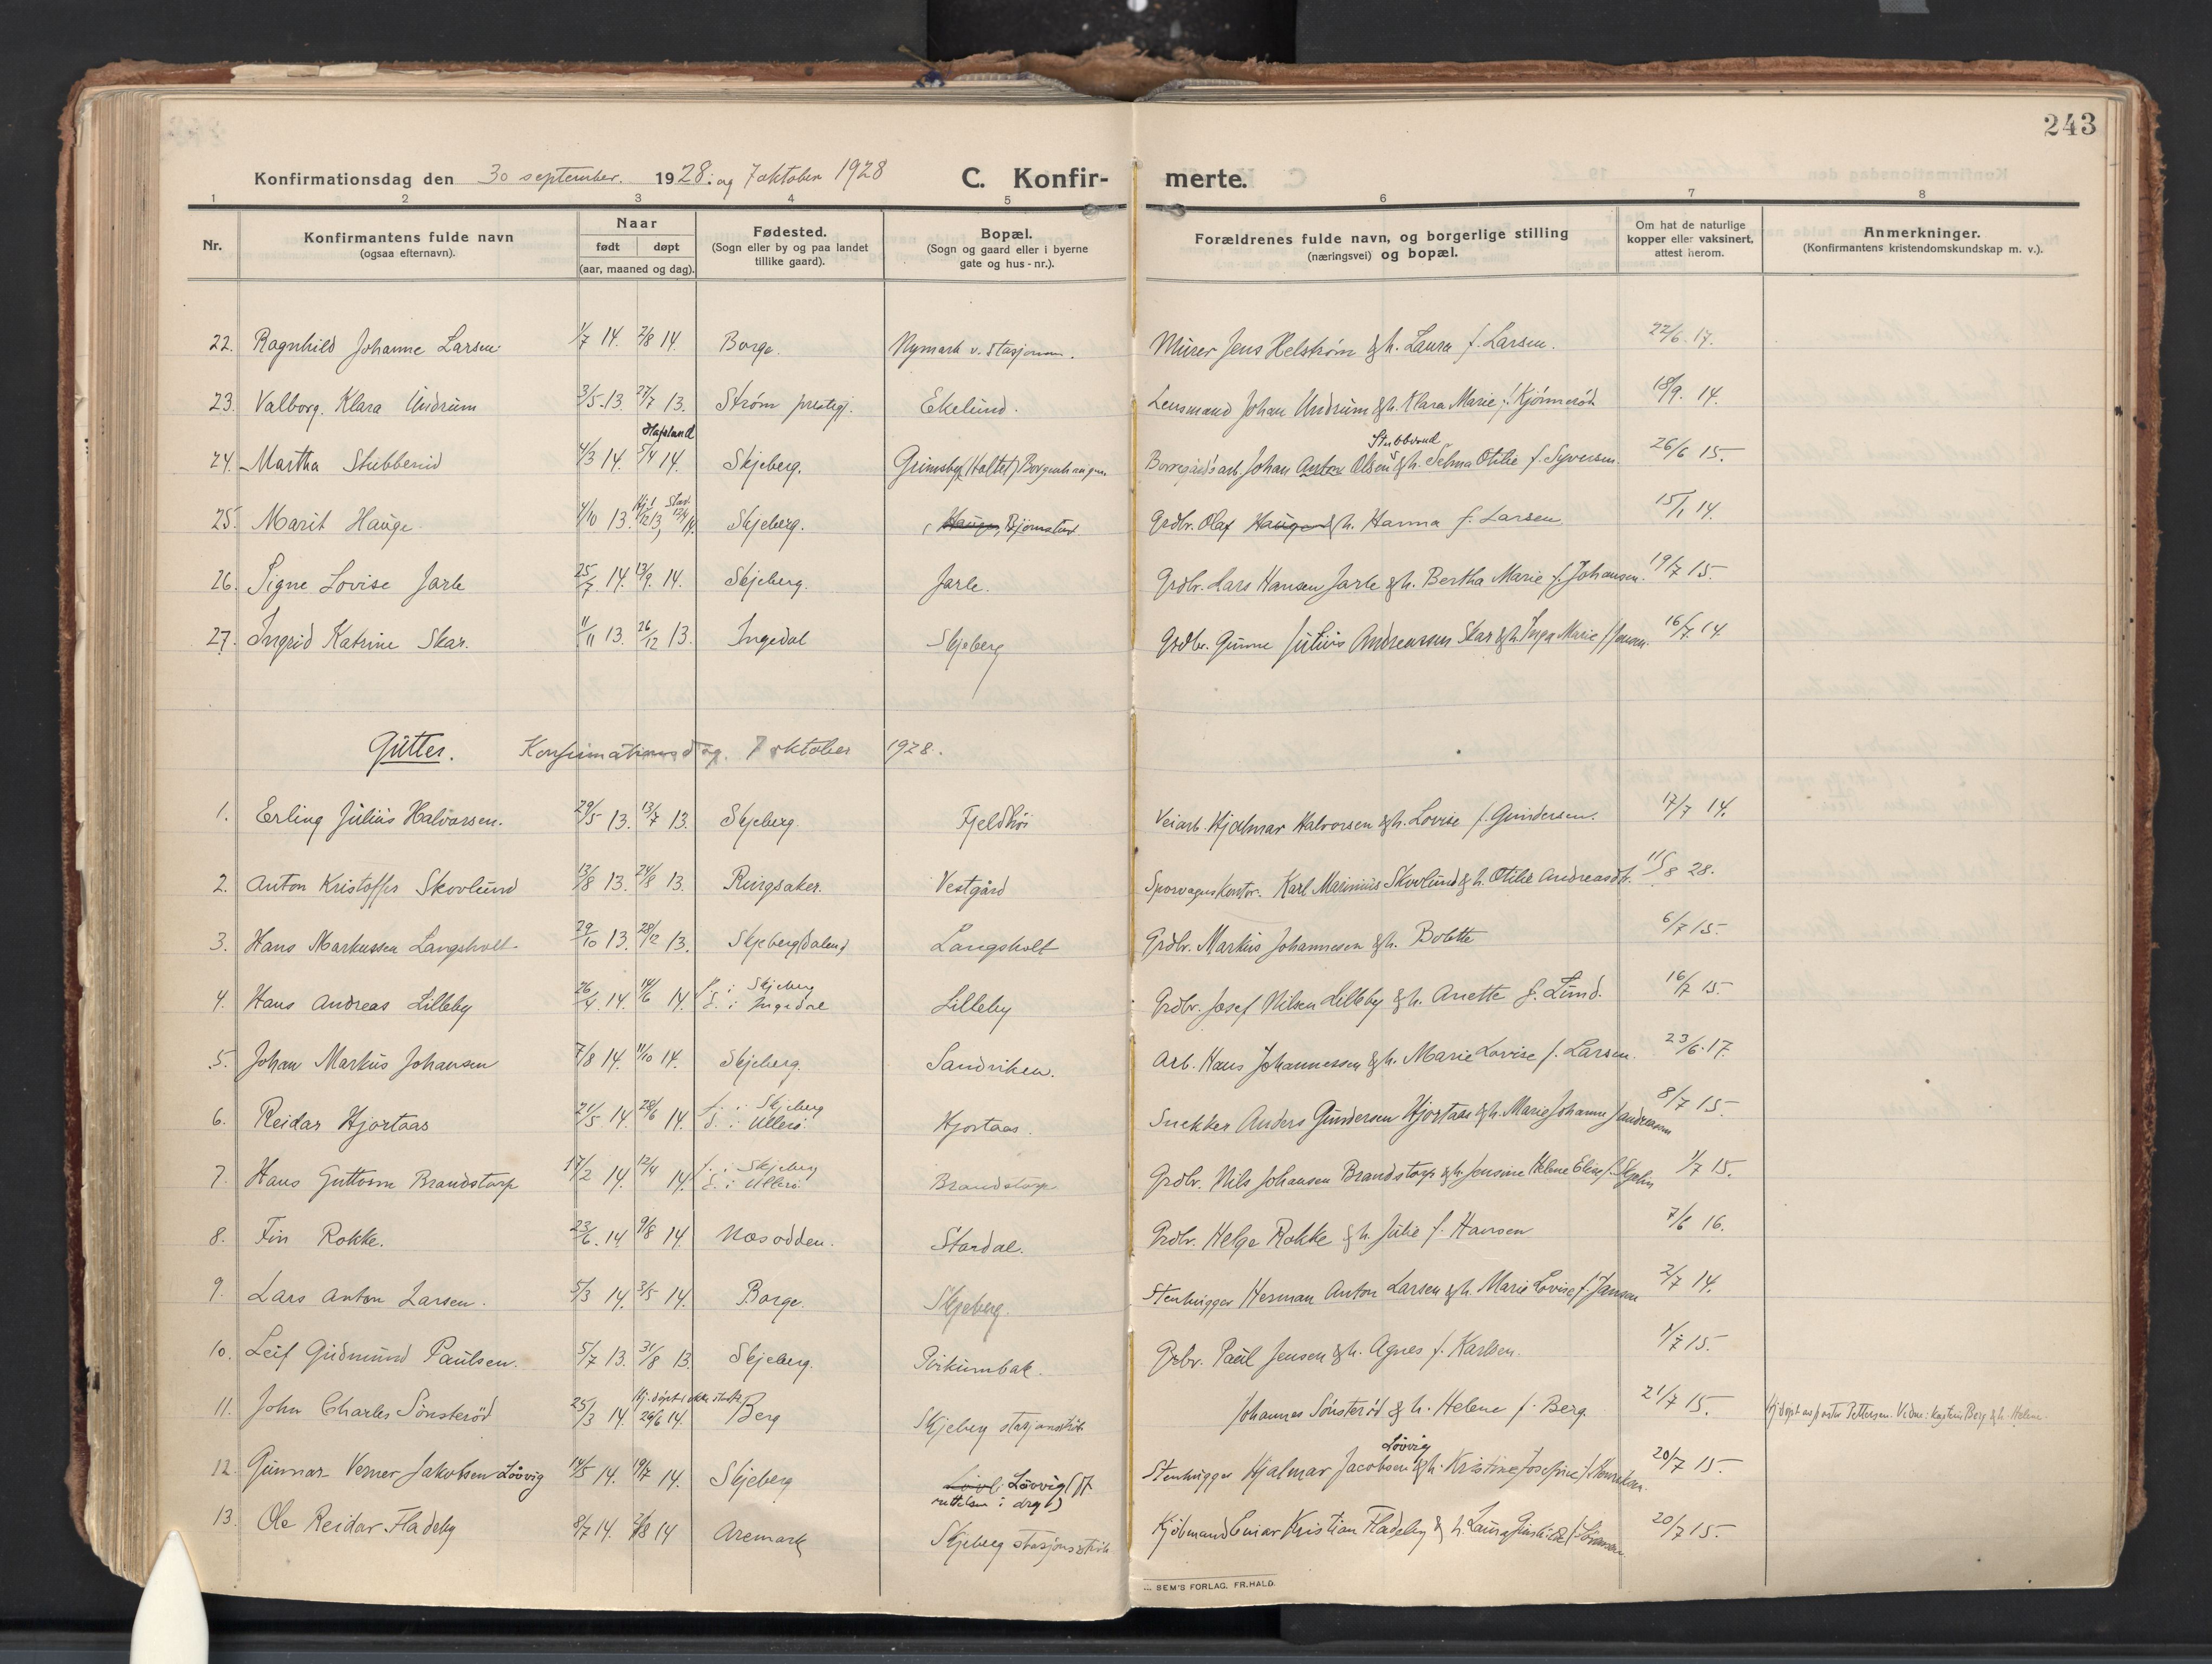 243
Konfirmationsdag den 30 september. 1928. og 7 oktober 1928 C. Konfir- merte.
1 2 3 4 5 6 7 8
Nr. Konfirmantens fulde navn (ogsaa efternavn). Naar født døpt (aar, maaned og dag). Fødested. (Sogn eller by og paa landet tillike gaard). Bopæl. (Sogn og gaard eller i byerne gate og hus-nr.). Forældrenes fulde navn, og borgerlige stilling (næringsvei) og bopæl. Om hat de naturlige kopper eller vaksinert, attest herom. Anmerkninger. (Konfirmantens kristendomskundskap m. v.).
22. Ragnhild Johanne Larsen. 1/7 14. 2/8 14. Borge. Nymark v. stasjonen. Murer Jens Helstrøm & h. Laura f. Larsen. 22/6 17.
23. Valborg Klara Undrum 3/5 13. 27/7 13. Strøm prestegj. Ekelund. Lensmand Johan Undrum & h. Klara Marie f. Kjønnerød 18/9. 14.
Hafslund Stubberud
24. Martha Stubberud 4/3 14. 5/4 14. Skjeberg. Grimsby (Holtet) Borgenhaugen Borregaards arb. Johan Anton Olsen & h. Selma Otilie f. Syversen. 26/6 15.
25. Marit Hauge 4/10 13. Skjeberg. Hauger, Bjørnstad Grdbr. Olaf Haugen & h. Hanna f. Larsen 15/1 14.
26. Signe Lovise Jarle 25/7 14. 13/9. 14. Skjeberg. Jarle. Grdbr. Lars Hansen Jarle & h. Bertha Marie f. Johansen. 19/7 15.
27. Ingrid Katrine Skar. 11/11 13. 26/12 13. Ingedal Skjeberg Grdbr. Gunne Julius Andreassen Skar & h. Inga Marie f. Jensen. 16/7 14.
Gutter. Konfirmationsdag. 7 oktober 1928.
1. Erling Julius Halvorsen. 29/5 13. 13/7 13. Skjeberg. Fjeldhøi Veiarb. Hjalmar Halvorsen & h. Lovise f. Gundersen. 17/7 14.
2. Anton Kristoffer Skovlund 13/8 13. 24/8 13. Ringsaker. Vestgård Sporvognskontor. Karl Marinius Skovlund & h. Otilie Andreasdtr. 11/8 28.
3. Hans Markussen Langsholt 29/10 13. 28/12 13. Skjebergdalen Langsholt Grdbr. Markus Johannesen & h. Bolette 6/7 15.
4. Hans Andreas Lilleby 26/4 14. 14/6 14. f. i Skjeberg d. i Ingedal Lilleby Grdbr. Josef Nilsen Lilleby & h. Anette f. Lund. 16/7 15.
5. Johan Markus Johansen 7/8 14. 11/10 14. Skjeberg. Sandviken. Arb. Hans Johannessen & h. Marie Lovise f. Larsen. 23/6. 17.
6. Reidar Hjortaas 21/5 14. 28/6 14. f. i Skjeberg d. i Ullerø Hjortaas. Snekker Anders Gundersen Hjortaas & h. Marie Johanne f. Andreassen 8/7 15.
7. Hans Guttorm Brandstorp 17/2 14. 12/4 14. f. i Skjeberg d. i Ullerø Brandstorp Grdbr. Nils Johansen Brandstorp & h. Jensine Helene Elise f. 1/7 15.
8. Fin Rokke. 23/6. 14. 9/8 14. Nesodden. Stordal. Grdbr. Helge Rokke & h. Julie f. Hansen 7/6 16.
9. Lars Anton Larsen. 5/3 14. 3/5 14. Borge. Skjeberg. Stenhugger Herman Anton Larsen & h. Marie Lovise f. Jansen 2/7 14.
10. Leif Gudmund Paulsen. 5/7 13. 31/8 13. Skjeberg. Pirkumbak. Grdbr. Paul Jensen & h. Agnes f. Karlsen. 1/7 15.
11. John Charles Sønsterød 25/3 14. 26/6 14. Berg Skjeberg stasjonsstrøk Johannes Sønsterød & h. Helene f. Berg. 21/7 15. Hj.døpt av pastor Pettersen. Vidne: Berg & h. Helene.
Løvvig
12. Gunnar Verner Jakobsen Løvvig 14/5 14. 19/7 14. Skjeberg Løvvig Stenhugger Hjalmar Jacobsen & h. Kristine Josefine f. Henriksen. 20/7 15.
13. Ole Reidar Fladeby 8/7 14. 2/8 14 Aremark Skjeberg stasjonsstrøk Kjøbmand Einar Kristian Fladeby & h. Laura 20/7 15.
SEM'S FORLAG, FR.HALD.